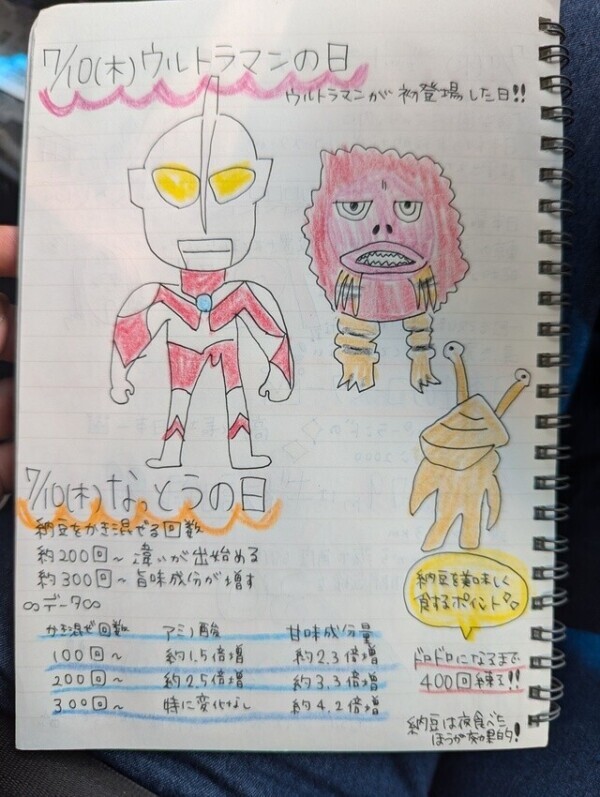 7/10(木)ウルトラマンの日
ウルトラマンが初登場した日!!
7/10(木)なっとうの日
納豆をかき混ぜる回数
約200回～違いが出始める
約300回～旨味成分が増す
∞データ∞
かき混ぜ回数 アミノ酸 甘味成分量
100回～ 約1.5倍増 約2.3倍増
200回～ 約2.5倍増 約3.3倍増
300回～ 特に変化なし 約4.2倍増
納豆を美味しく
食するポイント
ドロドロになるまで
400回練る!!
納豆は夜食べた
ほうが効果的!